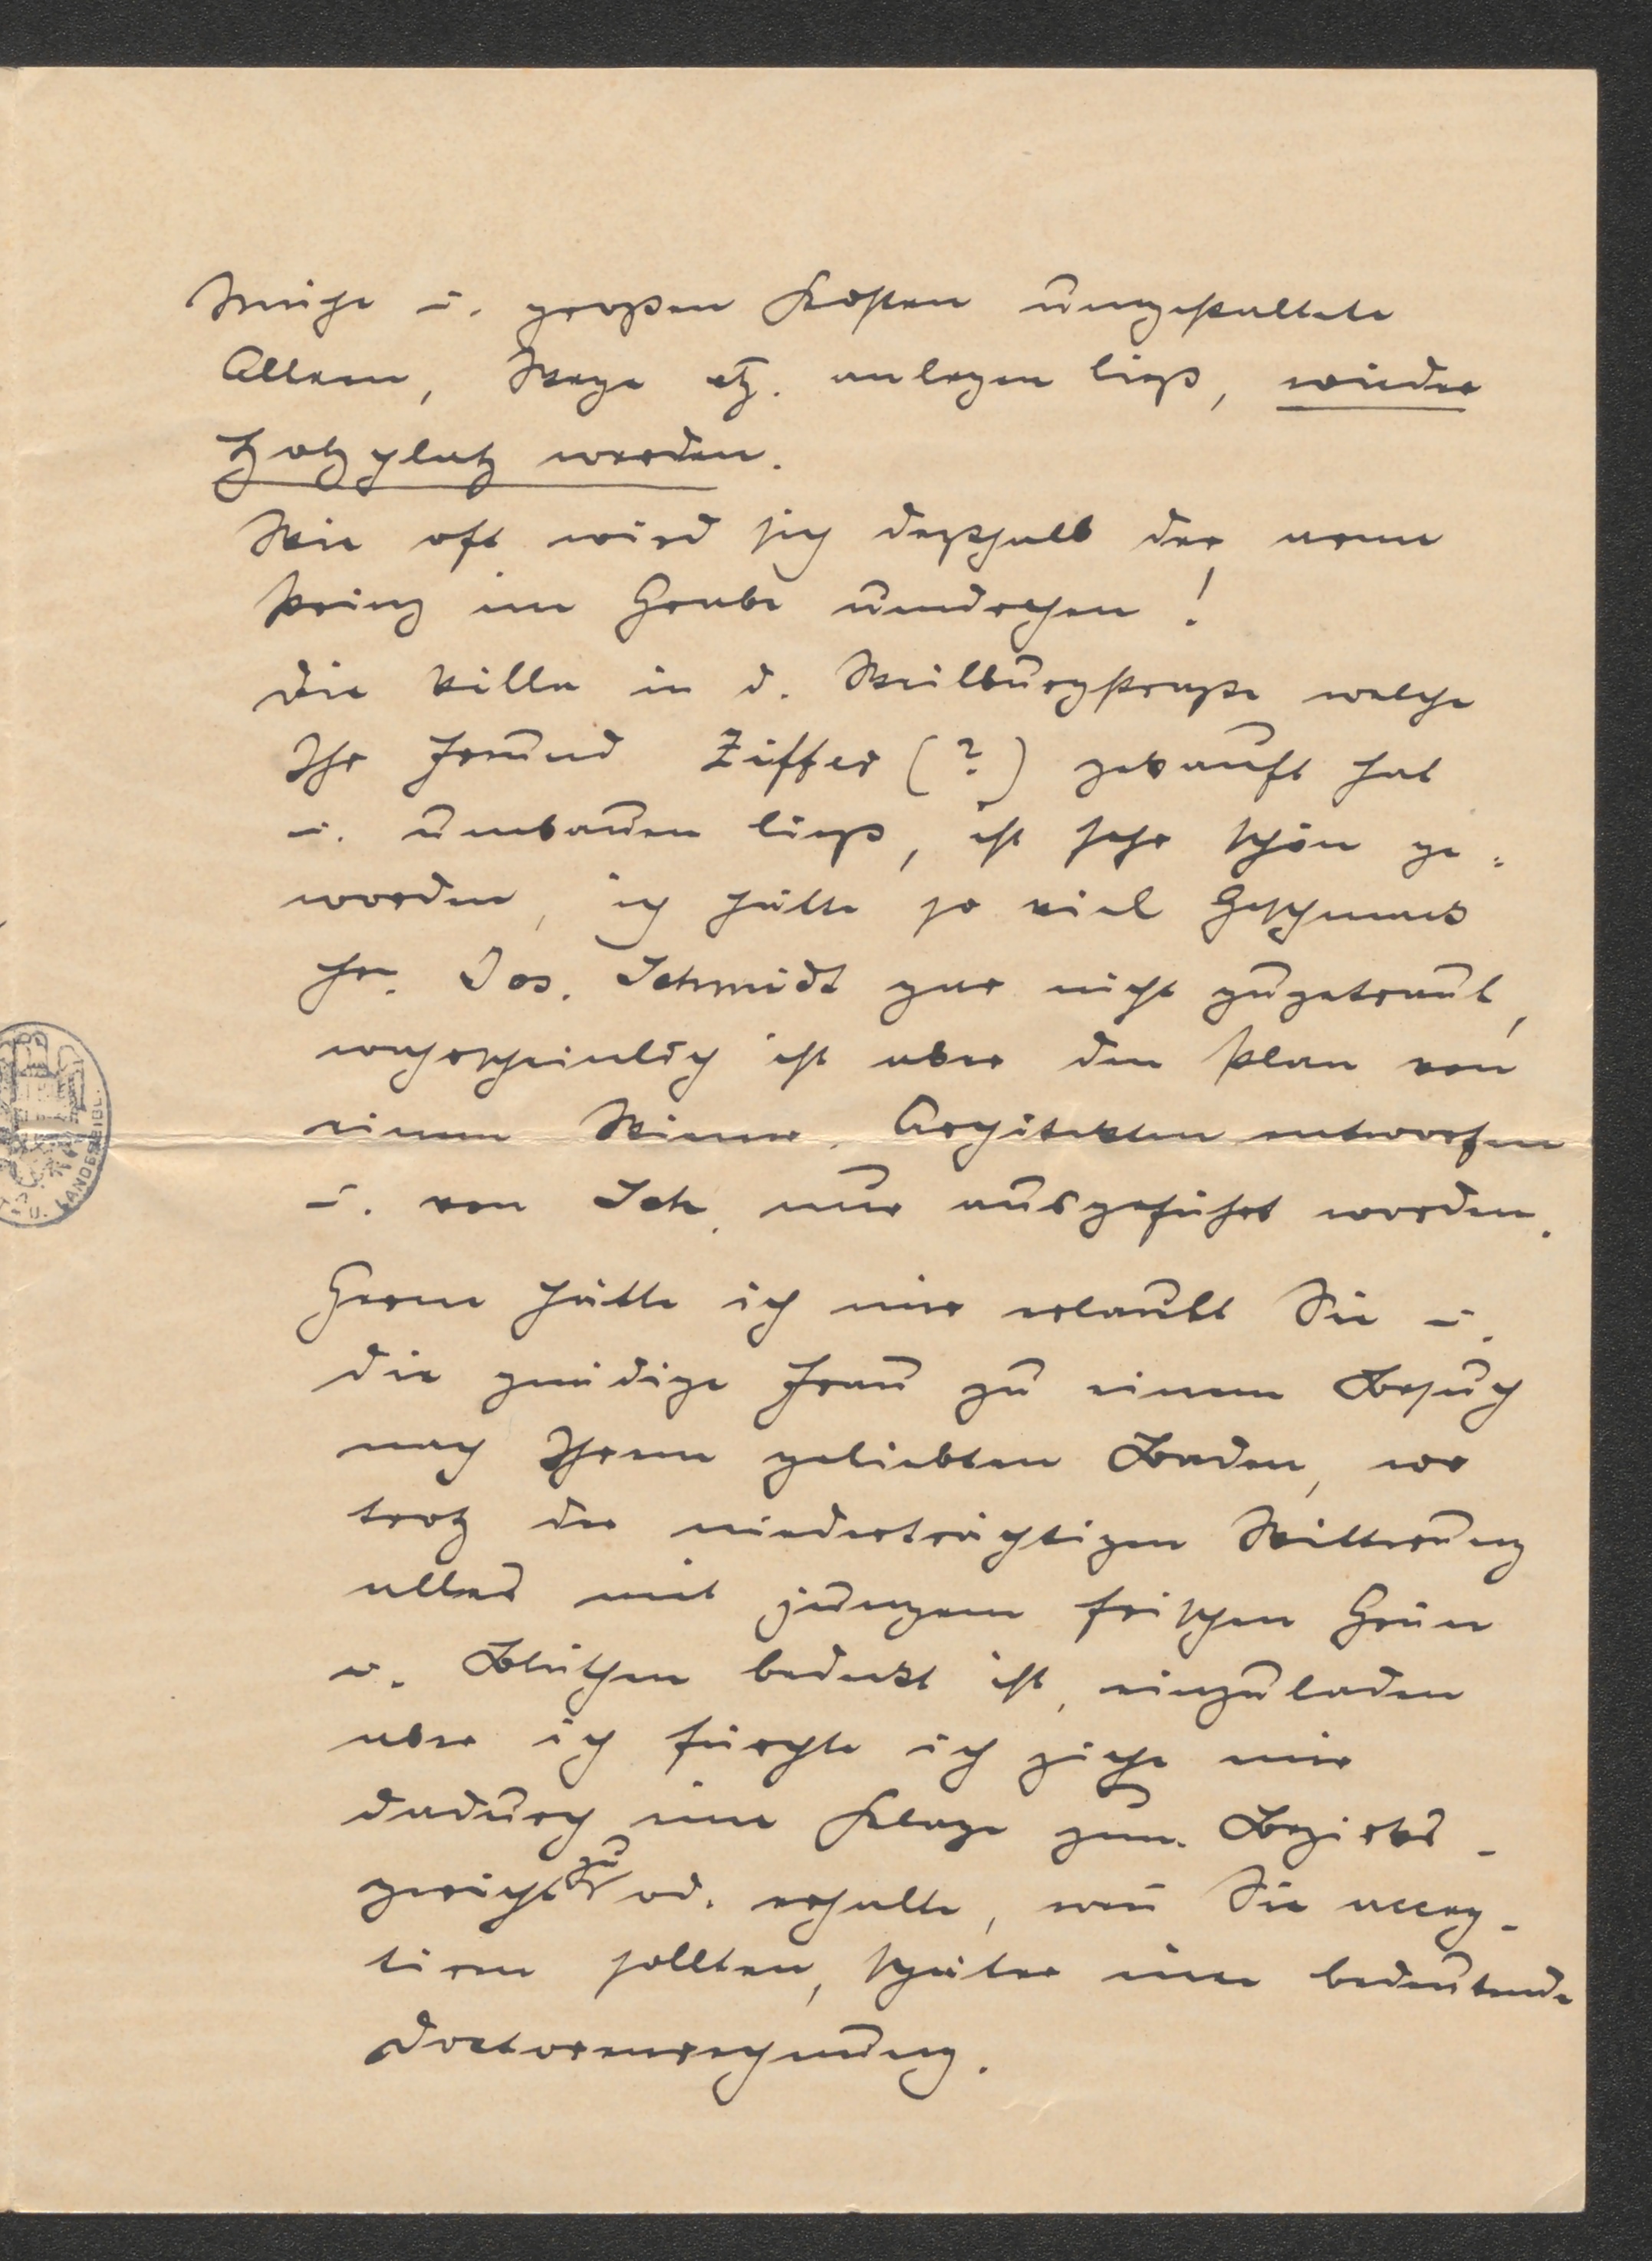 Mühe u. großen Kosten umgestaltete
Alleen, Wege etz. anlegen ließ, wieder
Holzplatz werden.
Wie oft wird sich deßhalb der arme
Prinz im Grabe umdrehen!
Die Villa in d. Weilburgstraße welche
Ihr Freund Ziffer (?) gekauft hat
u. umbauen ließ, ist sehr schön ge=
worden, ich hätte so viel Geschmack
Hr. Jos. Schmidt gar nicht zugetraut,
wahrscheinlich ist aber den Plan von
einem Wiener Architekten entworfen
u. von Sch. nur ausgeführt worden.
Gerne hätte ich mir erlaubt Sie u.
die gnädige Frau zu einem Besuch
nach Ihrem geliebten Baden, wo
trotz der niederträchtigen Witterung
alles mit jungem frischen Grün
u. Blüthen bedeckt ist, einzuladen
aber ich fürchte ich ziehe mir
dadurch eine Klage zum Bezirks-
gericht zu od. erhalte, wen̄ Sie accep-
tiren sollten, später eine bedeutende
Doctorenrechnung.
LANDESBIBL.